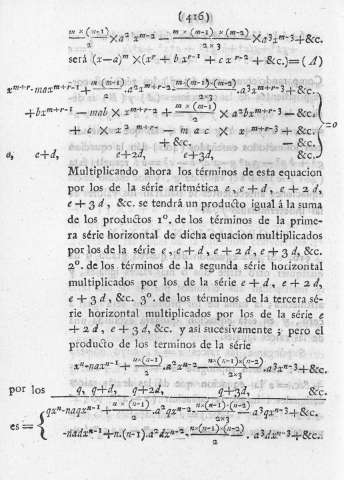 (416)
m × (m-1)/2 × a² x^m-2 — m × (m-1) × (m-2)/2 × 3 × a³ x^m-3 + &c.
será (x—a)^m × (x^r + b x^r-1 + c x^r-2 + &c.) = (A)
x^m+r - max^m+r-1 + m (m-1)/2 . a² x^m+r-2 - m.(m-1).(m-2)/2 × 3 . a³ x^m+r-3 + &c.
+ bx^m+r-1 — mab × x^m+r-2 + m × (m-1)/2 × a² bx^m+r-3 — &c.
+ c × x^m+r-2 — m a c × x^m+r-3 + &c.
+ &c. — &c.
=0
e+d, e+2d, e+3d, &c.
Multiplicando ahora los términos de esta equacion
por los de la série aritmética e, e + d, e + 2 d,
e + 3 d, &c. se tendrá un producto igual á la suma
de los productos 1º. de los términos de la prime-
ra série horizontal de dicha equacion multiplicados
por los de la série e, e + d, e + 2 d, e + 3 d, &c.
2º. de los términos de la segunda série horizontal
multiplicados por los de la série e + d, e + 2 d,
e + 3 d, &c. 3º. de los términos de la tercera sé-
rie horizontal multiplicados por los de la série e
+ 2 d, e + 3 d, &c. y asi sucesivamente ; pero el
producto de los terminos de la série
x^n - nax^n-1 + n × (n-1)/2 . a² x^n-2 - n × (n-1) × (n-2)/2 × 3 . a³ x^n-3 + &c.
por los q, q+d, q+2d, q+3d, &c.
es = { qx^n - naqx^n-1 + n × (n-1)/2 . a² qx^n-2 - n×(n-1)·(n-2)/2×3 a³ qx^n-3 + &c.
-nadx^n-1 + n.(n-1).a² dx^n-2 - n×(n-1)·(n-2)/2 . a³ dx^n-3 + &c.